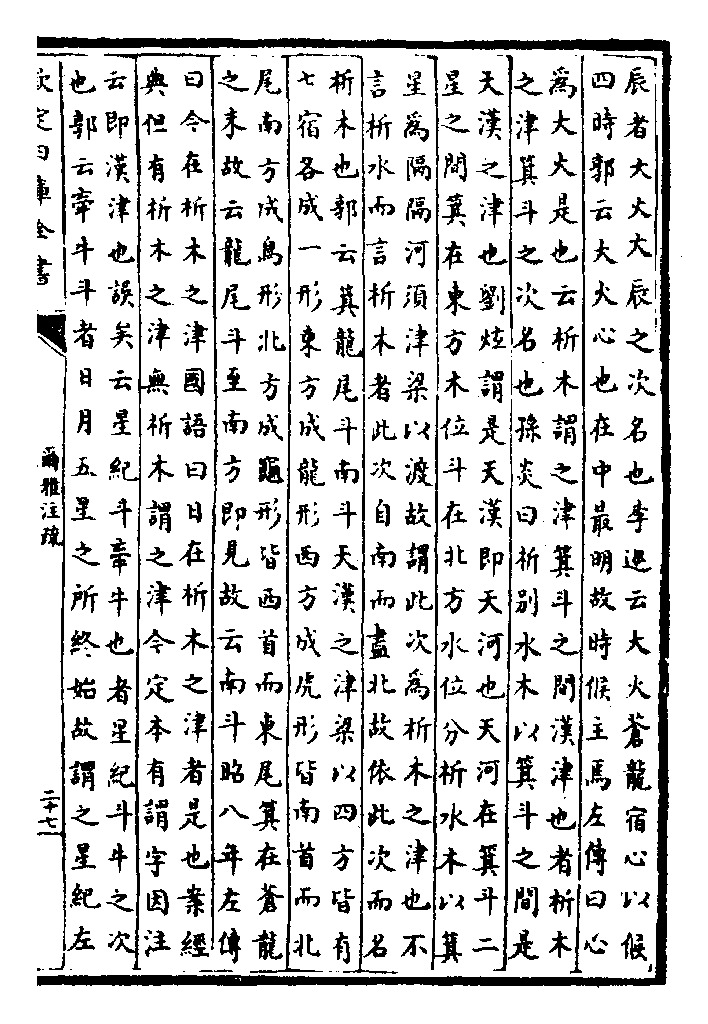 辰者大火大辰之次名也李巡云大火蒼龍宿心以候
四時郭云大火心也在中最明故時候主焉左傳曰心
為大火是也云析木謂之津箕斗之間漢津也者析木
之津箕斗之次名也孫炎曰析別水木以箕斗之間是
天漢之津也劉炫謂是天漢即天河也天河在箕斗二
星之間箕在東方木位斗在北方水位分析水木以箕
星為隔隔河須津梁以渡故謂此次為析木之津也不
言析水而言析木者此次自南而盡北故依此次而名
析木也郭云箕龍尾斗南斗天漢之津梁以四方皆有
七宿各成一形東方成龍形西方成虎形皆南首而北
尾南方成鳥形北方成龜形皆西首而東尾箕在蒼龍
之末故云龍尾斗至南方即見故云南斗昭八年左傳
曰今在析木之津國語曰日在析木之津者是也案經
典但有析木之津無析木謂之津今定本有謂字因注
云即漢津也誤矣云星紀斗牽牛也者星紀斗牛之次
也郭云牽牛斗者日月五星之所終始故謂之星紀左
欽定四庫全書
爾雅注疏
二十七